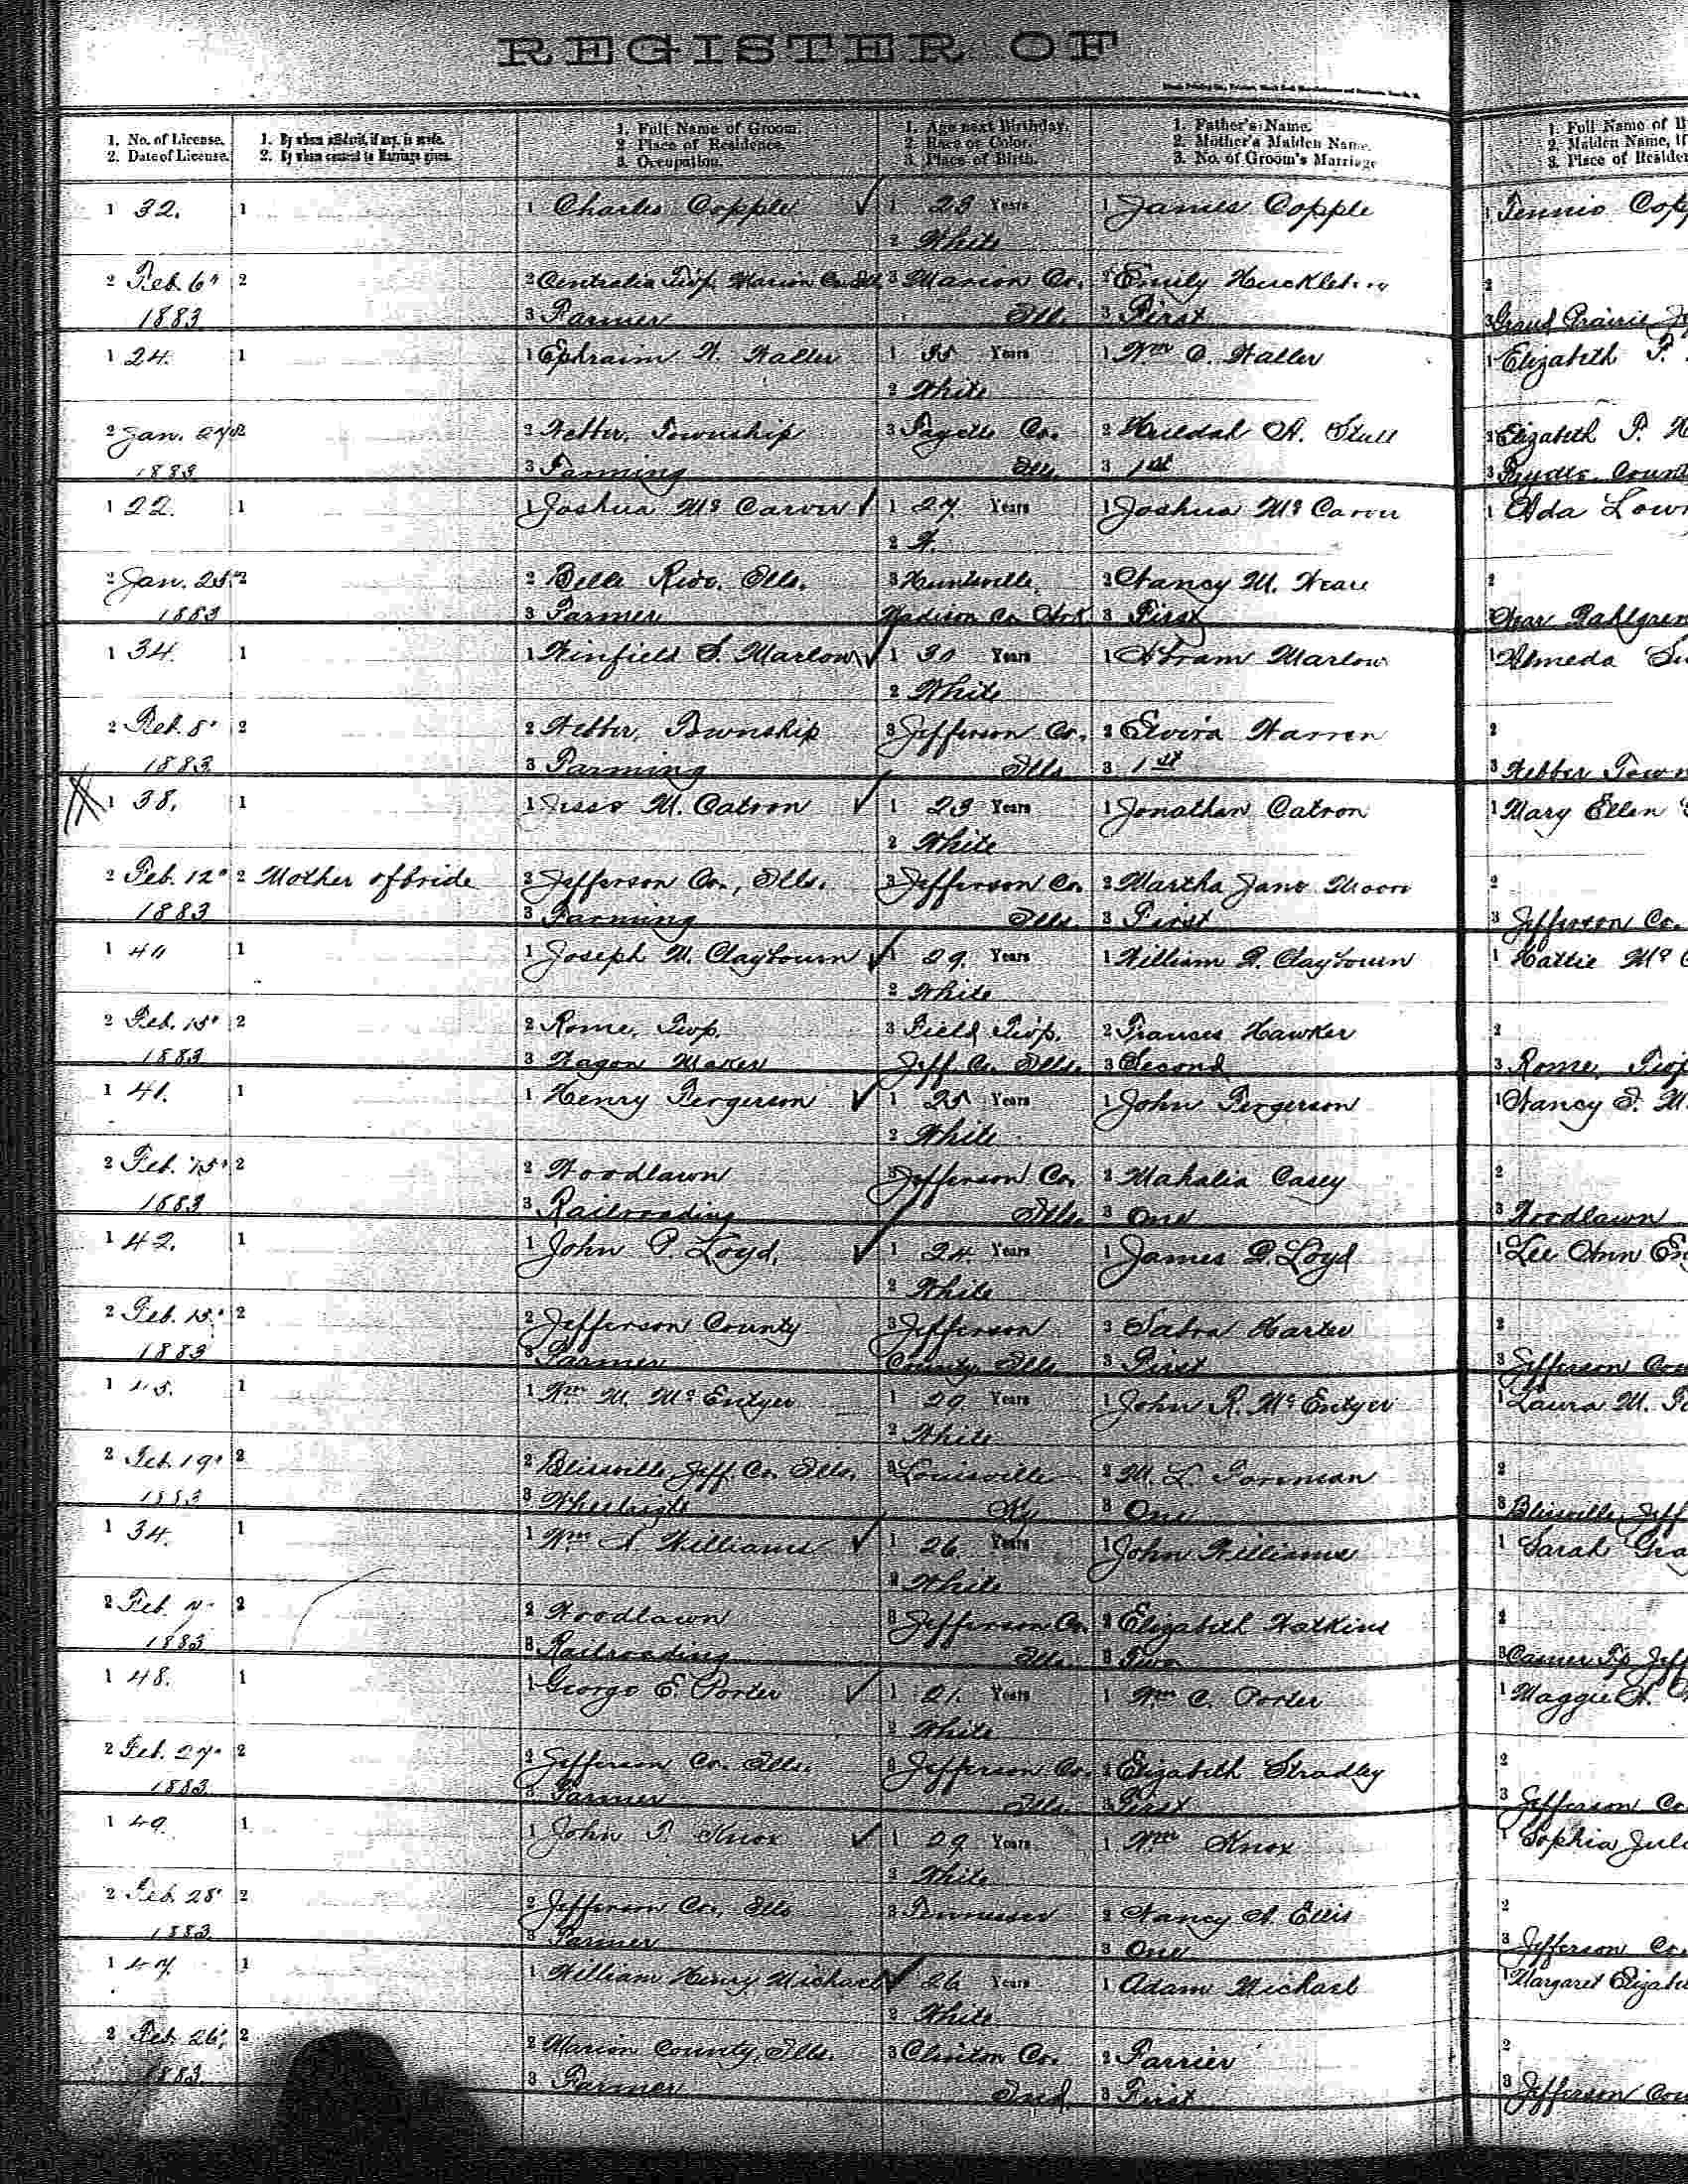 REGISTER OF
1. No. of License.
2. Date of License.
1. By whom affidavit, if any, is made.
2. By whom consent to Marriage given.
1. Full Name of Groom.
2. Place of Residence.
3. Occupation.
1. Age next Birthday.
2. Race or Color.
3. Place of Birth.
1. Father's Name.
2. Mother's Maiden Name.
3. No. of Groom's Marriage
1. Full Name of
2. Maiden Name, if
3. Place of Residen
1 32. 1 1 Charles Copple 1 23 Years 1 James Copple 1 Tennie Cop
2 White
2 Feb. 6" 2 2 Centralia Twp. Marion Co. Ill 3 Marion Co. 2 Emily 2
1883 3 Farmer Ill. 3 First 3 Grand Prairie
1 24. 1 1 Ephraim W. Waller 1 35 Years 1 Wm C. Waller 1 Elizabeth P.
2 White
2 Jan. 27 2 2 Webber Township 3 Fayette Co. 2 Huldah A. Stull 2 Elizabeth P.
1883 3 Farming Ills. 3 1st 3 Count
1 22. 1 1 Joshua McCarver 1 27. Years 1 Joshua McCarver 1 Ada Low
2 W.
2 Jan. 25. 2 2 Belle Rive, Ills. 3 Huntsville, 2 Nancy M. 2
1883 3 Farmer Madison Co. Ark 3 First 3 Near Dahlgren
1 34. 1 1 Winfield S. Marlow 1 30 Years 1 Abram Marlow 1 Almeda
2 White
2 Feb. 8" 2 2 Webber, Township 3 Jefferson Co. 2 Elvira Warren 2
1883 3 Farming Ills 3 1st 3 Webber Town
1 38. 1 1 Jesse M. Catron 1 23 Years 1 Jonathan Catron 1 Mary Ellen
2 White
2 Feb. 12" 2 Mother of bride 2 Jefferson Co., Ills. 3 Jefferson Co. 2 Martha Jane Moore 2
1883 3 Farming Ills. 3 First 3 Jefferson Co.
1 40 1 1 Joseph W. Claybourn 1 29. Years 1 William R. Claybourn 1 Hattie Mc
2 White
2 Feb. 15" 2 2 Rome, Twp. 3 Field Twp. 2 Frances Hawker 2
1883 3 Wagon Maker Jeff. Co. Ills. 3 Second 3 Rome, Twp
1 41. 1 1 Henry Fergerson 1 25 Years 1 John Fergerson 1 Nancy
2 White
2 Feb. 15" 2 2 Woodlawn 3 Jefferson Co. 2 Mahalia Casey 2
1883 3 Railroading Ills. 3 One 3 Woodlawn
1 42. 1 1 John P. Loyd, 1 24. Years 1 James D. Loyd 1 Lee Ann
2 White
2 Feb. 15" 2 2 Jefferson County 3 Jefferson 2 Sabra Harter 2
1883 3 Farmer County, Ills. 3 First 3 Jefferson Cou
1 45. 1 1 Wm M. McEntyer 1 29 Years 1 John R. McEntyer 1 Laura M.
2 White
2 Feb. 19" 2 2 Blissville, Jeff. Co. Ills. 3 Louisville 2 M. L. Foreman 2
1883 3 Ky 3 One 3 Blissville, Jeff
1 34. 1 1 Wm A Williams 1 26. Years 1 John Williams 1 Sarah Gra
2 White
2 Feb. 2 2 Woodlawn 3 Jefferson Co. 2 Elizabeth Watkins 2
1883 3 Railroading Ills. 3 Two 3 Casner Tp Jeff
1 48. 1 1 George E. Porter 1 21. Years 1 Wm C. Porter 1 Maggie A.
2 White
2 Feb. 27" 2 2 Jefferson Co. Ills. 3 Jefferson Co. 2 Elizabeth Stradley 2
1883 3 Farmer Ills. 3 First 3 Jefferson Co
1 49. 1 1 John P. Knox 1 29 Years 1 Wm Knox 1 Sophia Juli
2 White
2 Feb. 28" 2 2 Jefferson Co., Ills 3 Tennessee 2 Nancy A. Ellis 2
1883 3 Farmer 3 One 3 Jefferson Co
1 47. 1 1 William Henry Michael 1 26 Years 1 Adam Michael 1 Margaret Elizabe
2 White
2 Feb. 26" 2 2 Marion County, Ills. 3 Clinton Co. 2 Farrier 2
1883 3 Farmer Ind. 3 First 3 Jefferson Cou